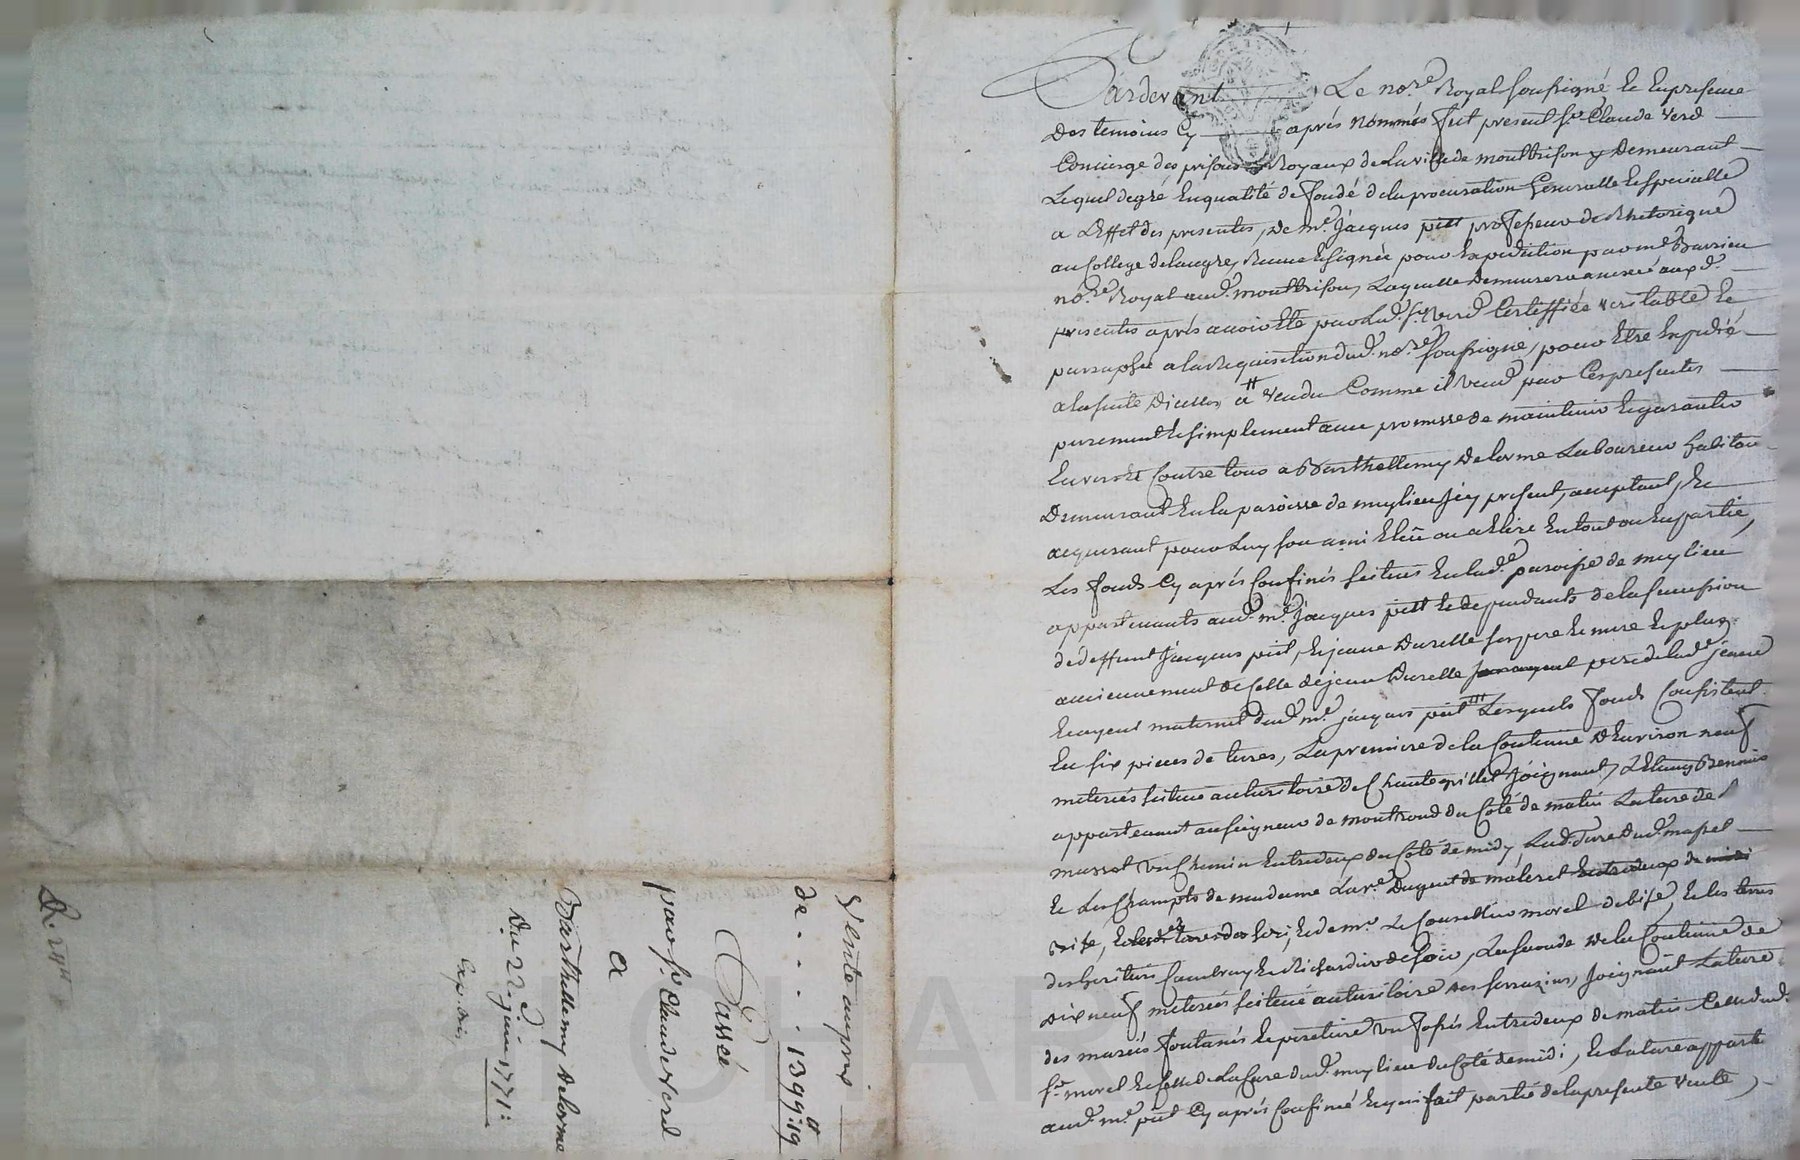 Pardevant Le no.re Royal soussigné Et En presence
Des temoins Cy aprés Nommés fut present s.r Claude Verd
Concierge des prisons Royaux de La ville de montbrison y Demeurant
Lequel degré En qualité de fondé de la procuration Generalle Et specialle
a L'Effet des presentes, De m.e Jacques piet professeur de Rhetorique
au College de Langre, Recue Et signée pour Expedition par m.e Barrieu
no.re Royal aud.t montbrison, Laquelle Demeurera annexé aux d.
presentes aprés avoir Eté par Led. s.r Verd Certiffiée Veritable Et
parraphée a la Requisition dud. no.re soussigné, pour Etre Expedié
a la suite Dicelles, a Vendu Comme il Vend par Ces presentes
purement Et simplement avec promesse de maintenir Et garantir
Envers Et Contre tous a Barthellemy Delorme Laboureur habitan
Demeurant En la paroisse de meylieu Icy present, acceptant, Et
acquerant pour Luy son ami Eleu ou a Elire En tout ou En partie,
Les fonds Cy aprés Confinés scitués En lad.e paroisse de meylieu
appartenants aud. m.e Jacques piet Et dependants de la succession
de deffunt Jacques piet, Et jeanne Durelle ses pere Et mere Et plus
anciennement de Celle de jean Durelle pere de lad.e jeanne
Et ayeul maternel dud. m.e jacques piet Lesquels fonds Consistent
En six pieces de terres, La premiere de la Contenue D'Environ neuf
meterées scitué au territoire de Chantegrillet Joignant, L'Etang
appartenant au seigneur de montrond du Coté de matin La terre de
massot Un Chemin Entredeux du Coté de midy, Lad. Terre Dud.
Et Les Champts de madame La v.e Duguet de
bise, soir, Et de m.r Le Conseiller morel de bise, Et les terres
des heritiers Cambray Et Richardier de soir, La seconde De la Contenue de
Dix neuf meterées scitué au territoire des sarrazins, Joignant La terre
des mariés fontanés Et peretiere Un fossés Entredeux de matin Celle dud.
s.r morel Et Celle de La Cure dud. meylieu du Coté de midi, Et La terre appart.t
aud. m.e piet Cy aprés Confiné Et qui fait partie de la presente Vente,
Vente au prix
de . . . . 1399:19
Passée
par s.r Claude Verd
a
Barthellemy Delorme
Du 22.e juin 1771: